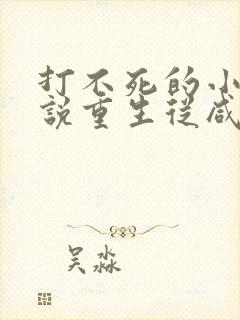 打不死的小
說重生從咸
吴淼